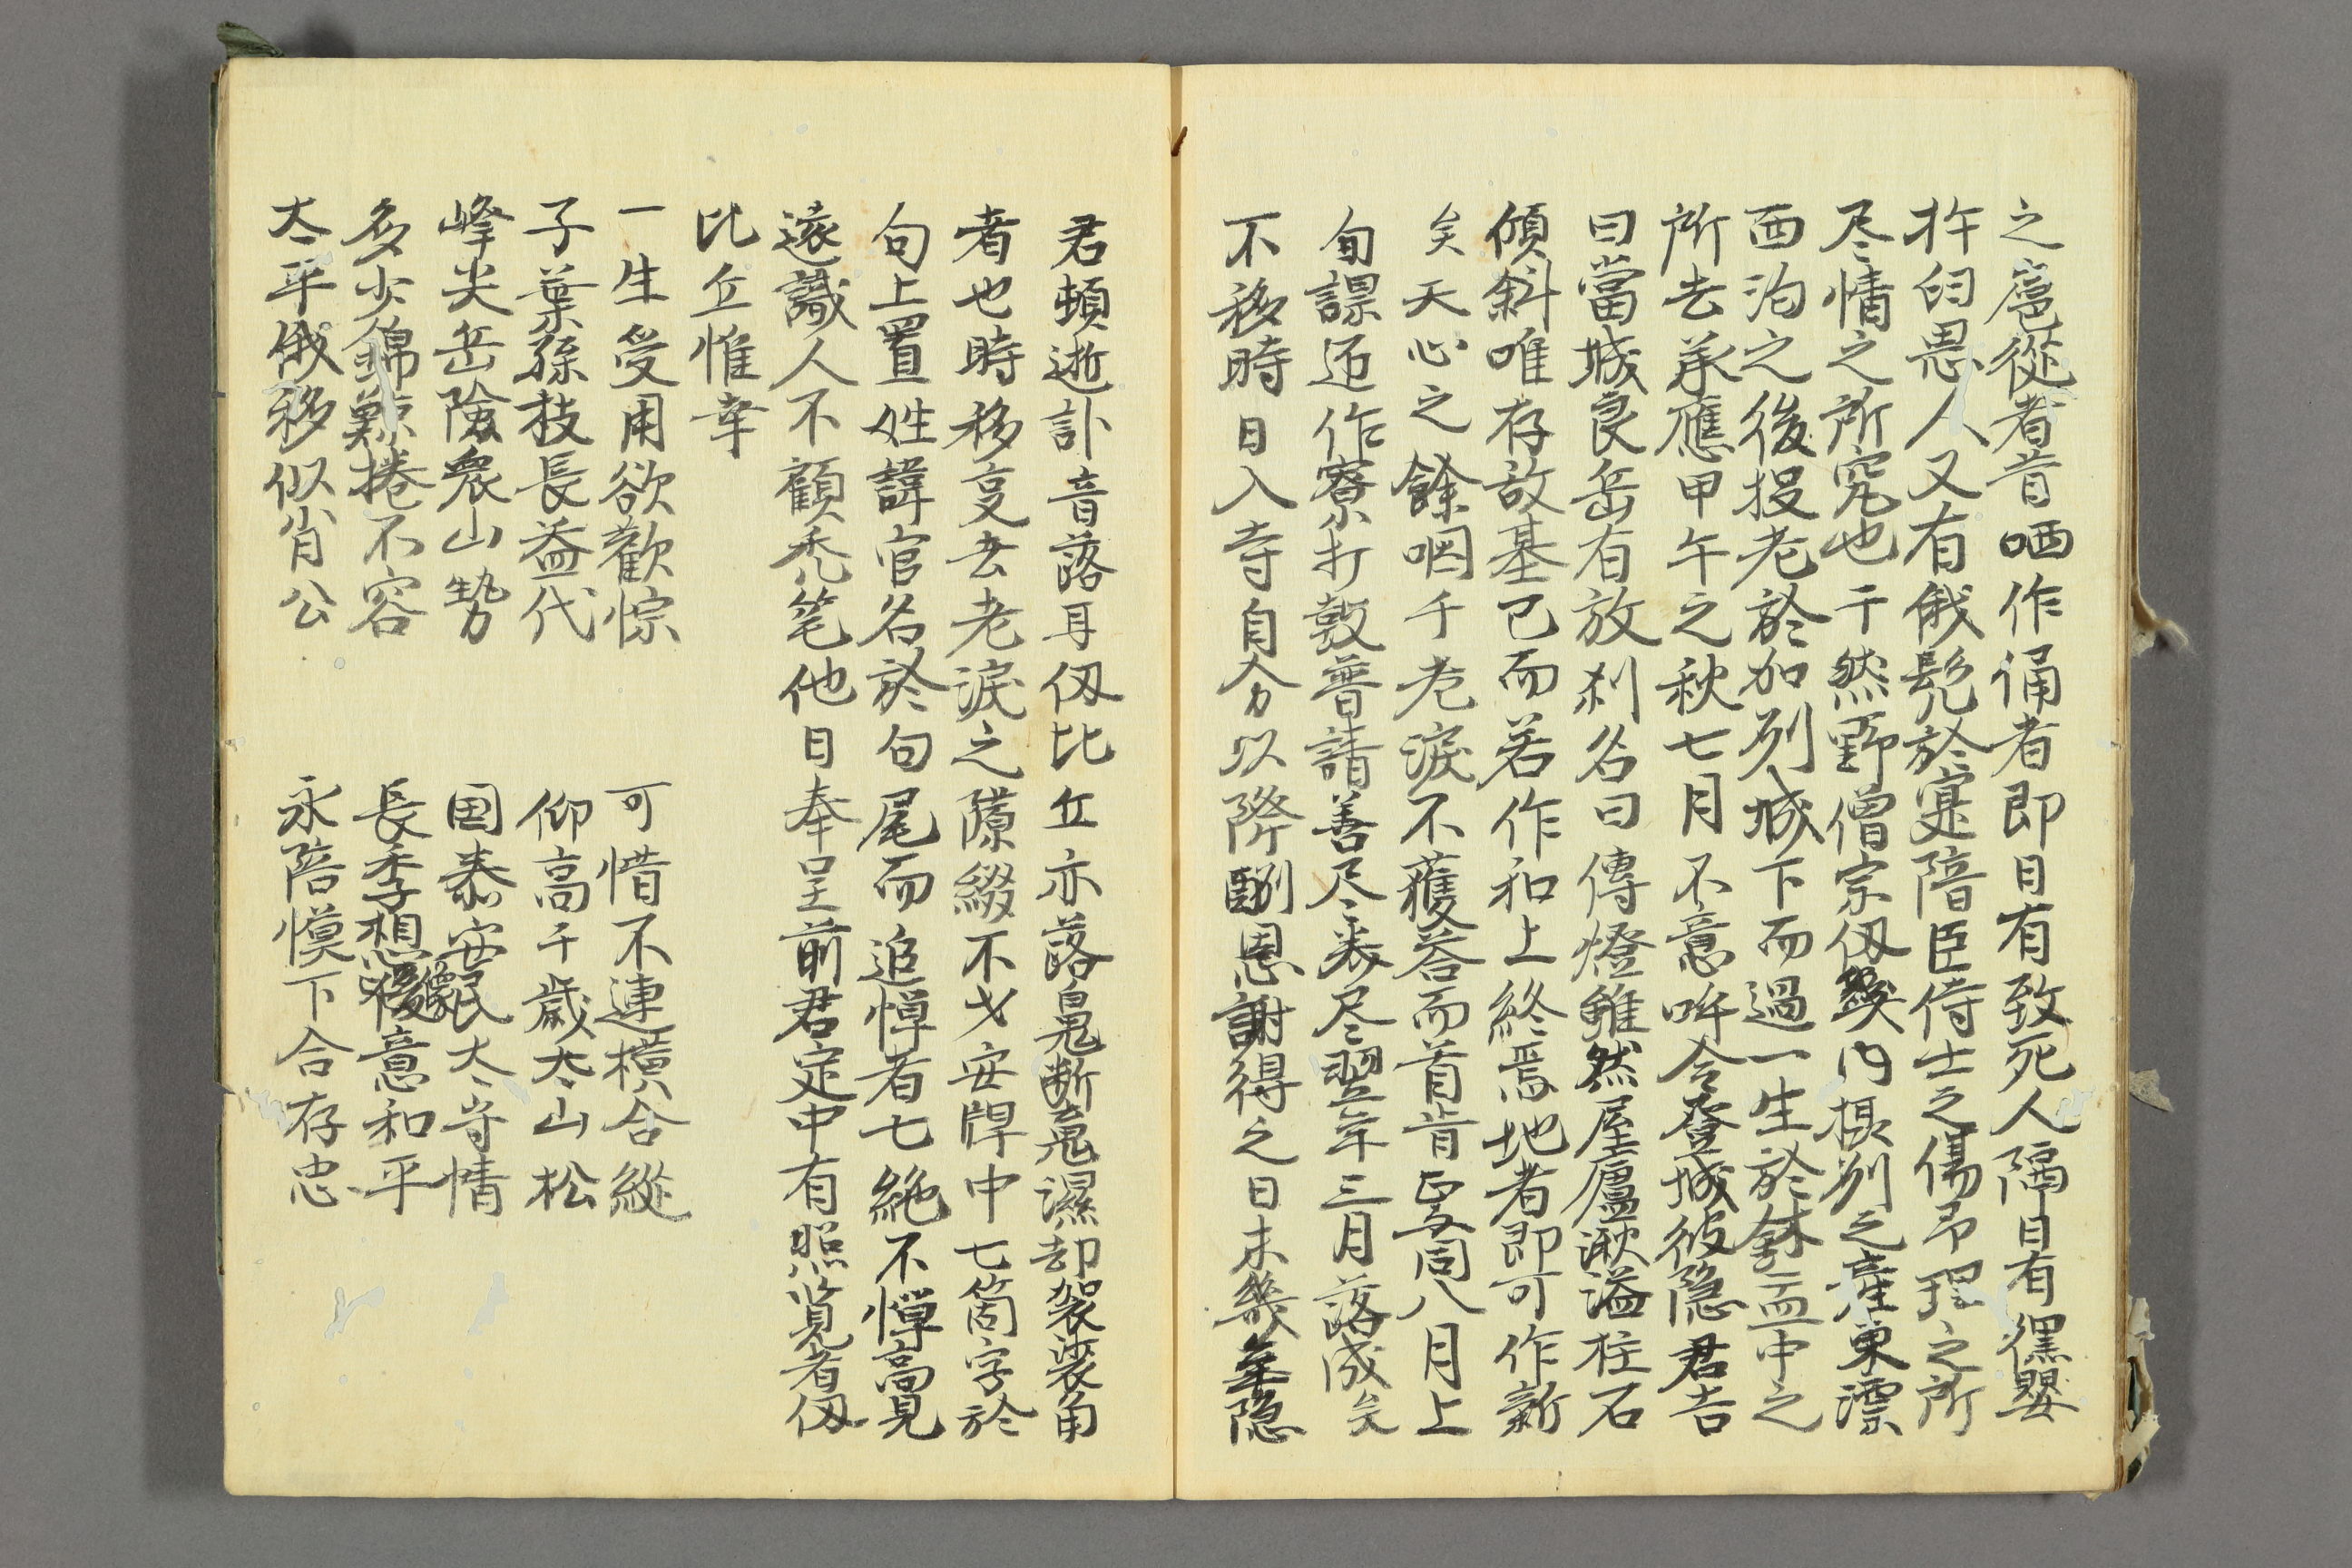 之扈從者昔哂作俑者即日有致死人隔日有纆嬰
杵臼愚人又有俄髡於寔陪臣侍士之傷吊理之所
尽情之所究也干然野僧宗仭内根別之產東漂
西泊之後投老於加列城下而過一生於鉢盂中之
所去承應甲午之秋七月不意呼令登城彼隐君告
曰當城良岳有放刹名曰傳燈雖然屋廬漱溢柱石
傾斜唯存故基已而若作和上終焉地者即可作新
矣天心之餘咽千老淚不獲荅而首肯同八月上
旬課迊作寮打敦普請善尽美尽翌年三月落成矣
不移時日入寺自夯以降酬恩謝得之日未幾隐
君頓逝訃音落耳仭比丘亦落皃断䰟濕却袈裟角
者也時移変去老淚之隙綴不戈安牌中七箇字於
句上置姓諱官名於句尾而追憚者七絶不憚高見
遠識人不顧禿笔他日奉呈前君定中有照览者仭
比丘惟幸
一生受用欲歡悰　可惜不連橫合縦
子葉孫枝長益代　仰高千歳太山松
峰尖岳險衆山勢　国泰安民大守情
多少錦鯨捲不容　長季想像穏意和平
太平俄移似肖公　永陪慔下合存忠